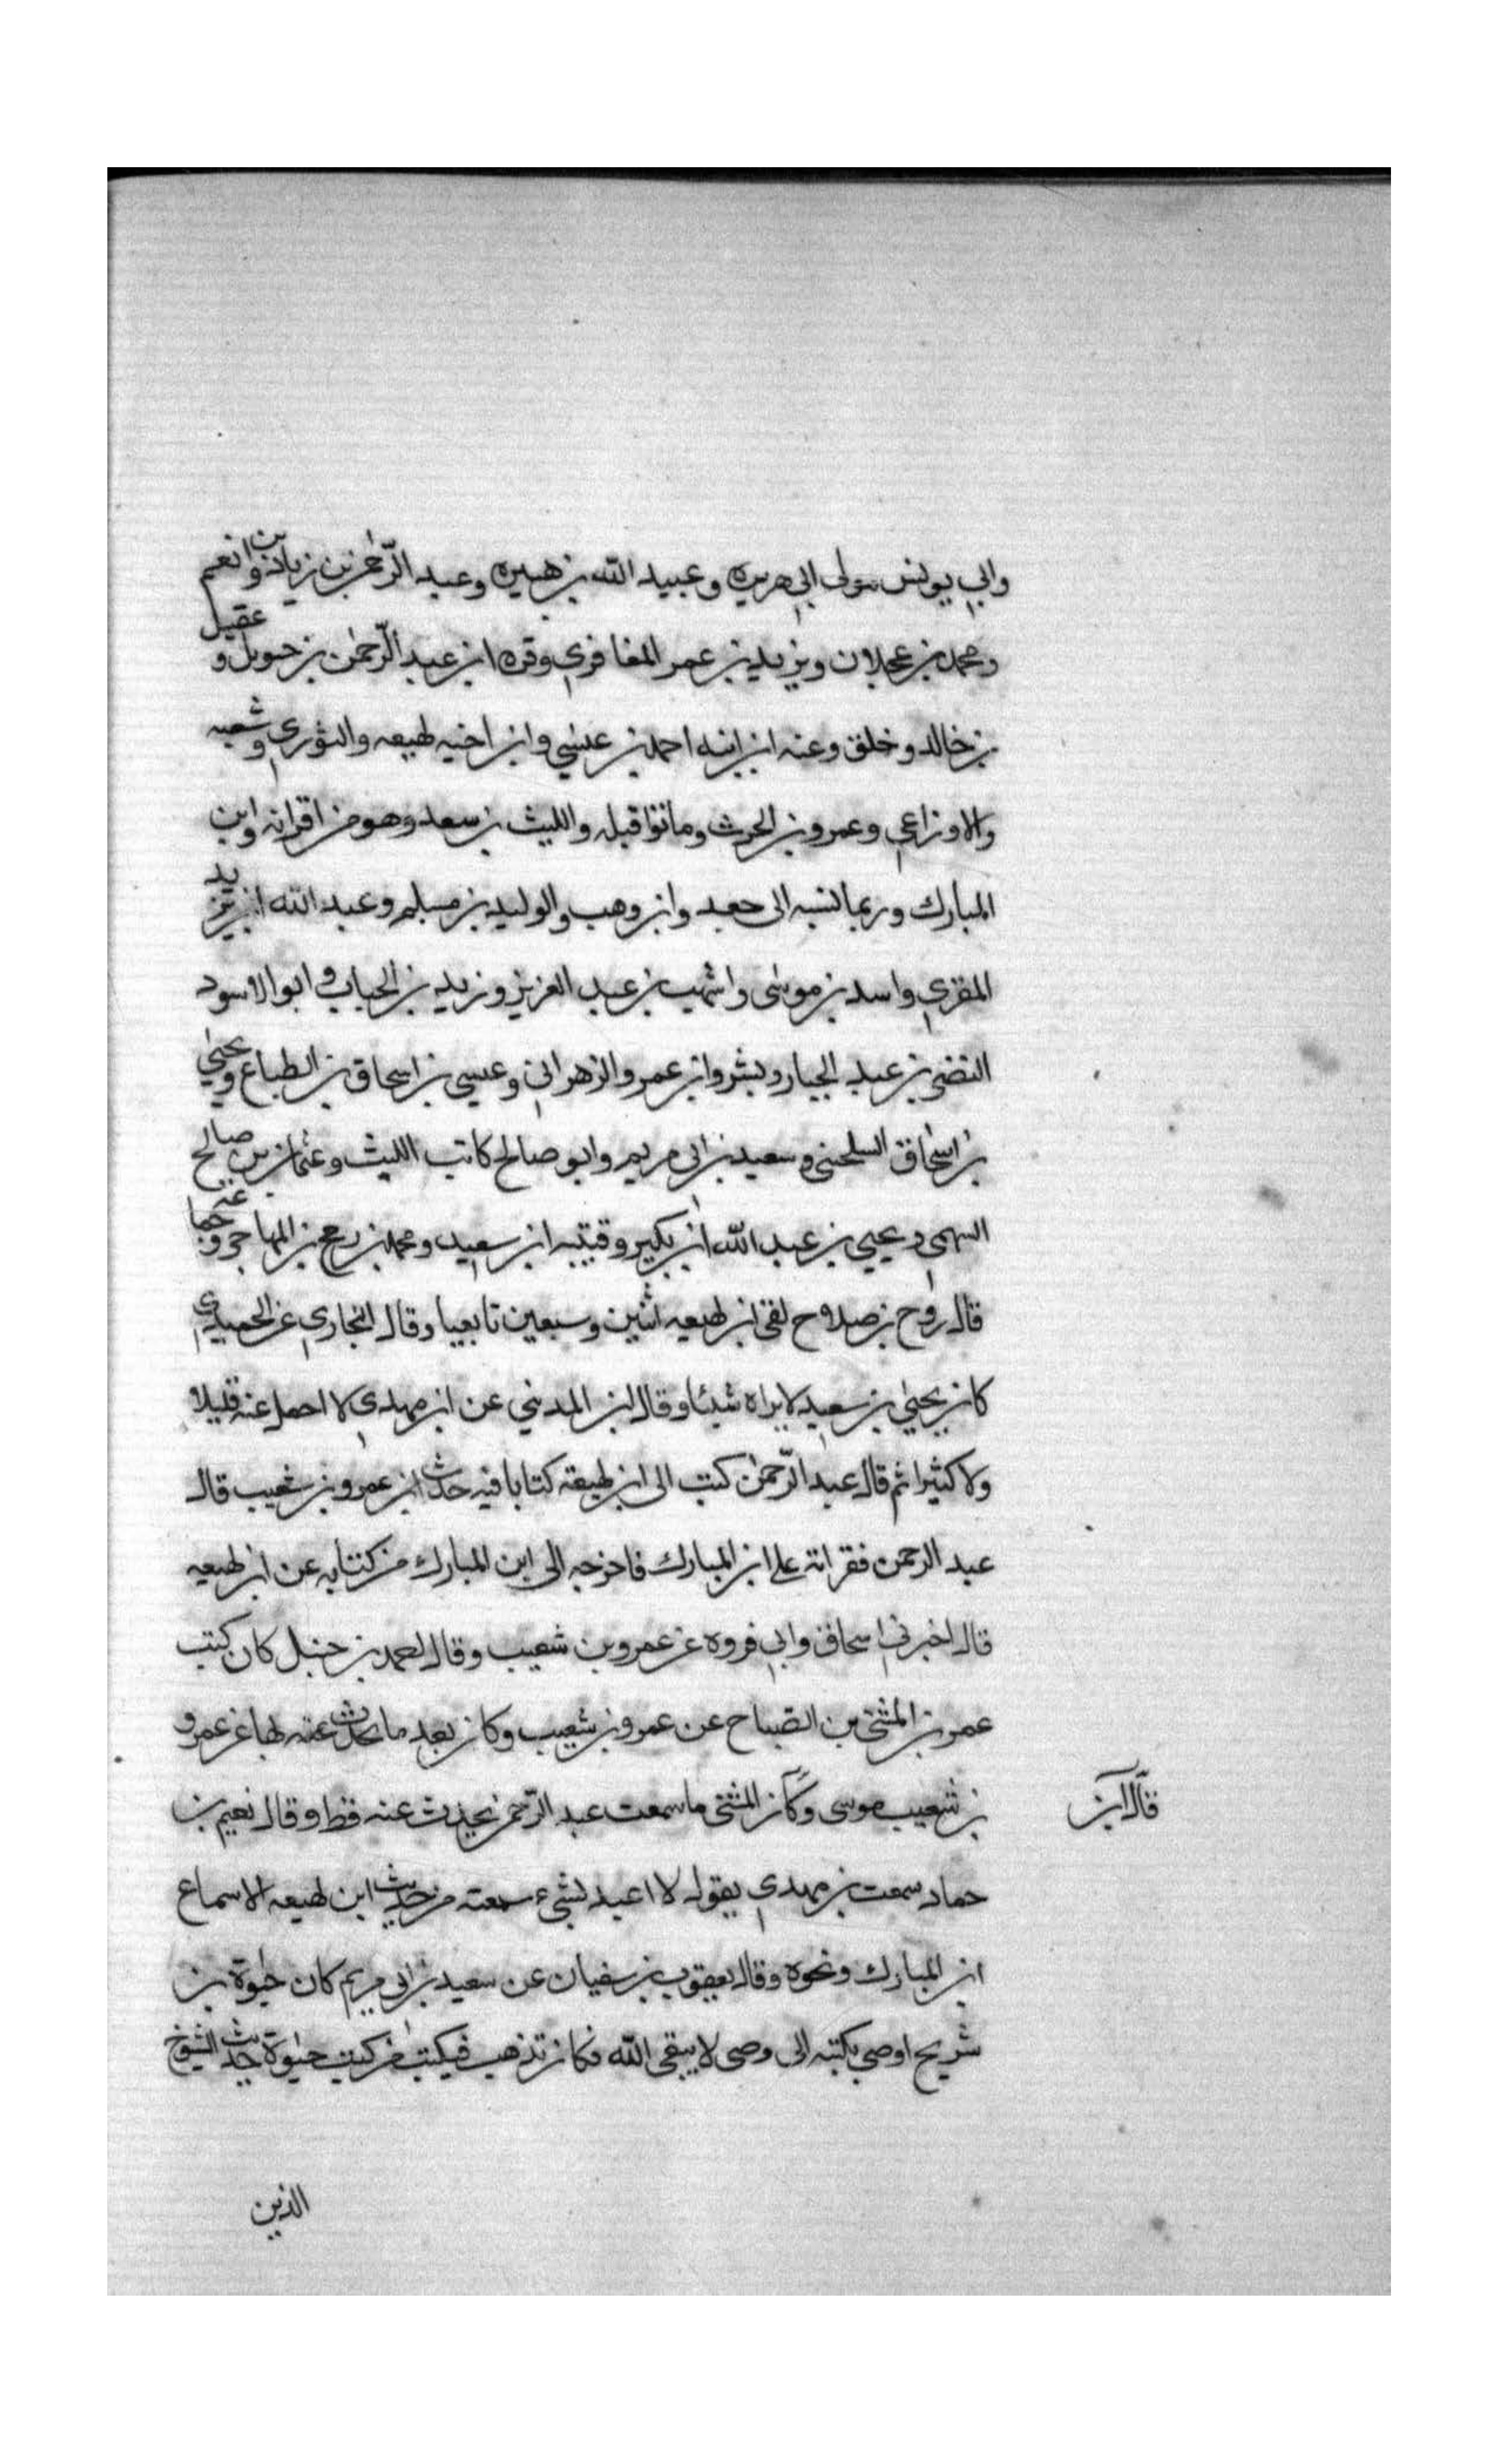 وابي يونس مولى ابي هريره وعبيد الله بن هبيره وعبد الرّحمٰن بن زياد بن وانعم
ومحمد بن عجلان ويزيد بن عمر المغافري وقره ابن عبد الرّحمٰن بن حويل و عقيل
بن خالد وخلق وعنه ابن ابنه احمد بن عيسٰي وابن اخيه لهيعه والثوري وشعبه
والاوزاعي وعمرو بن الحرث وماتوا قبله والليث بن سعد وهو من اقرانه وابن
المبارك وربما نسبه الى جده وابن وهب والوليد بن مسلم وعبد الله ابن يزيد
المقري واسد بن موسٰى واشهب بن عبد العزيز وزيد بن الحباب و ابو الاسود
النضر بن عبد الجبار وبشر وابن عمر والزهراني وعيسى بن اسحاق بن الطباع ويحيٰي
بن اسحاق السلحيني وسعيد بن ابي مريم وابو صالح كاتب الليث وعثمان بن صالح
السهمي ويحيي بن عبد الله ابن بكير وقتيبه ابن سعيد ومحمد بن رمح بن المهاجر وجماعه
قال روح بن صلاح لقي ابن لهيعه اثنين وسبعين تابعيا وقال البخاري عن الحميدي
كان يحيٰي بن سعيد لا يراه شيئا وقال ابن المديني عن ابن مهدي لا احمل عنه قليلا
ولا كثيرا ثم قال عبد الرّحمٰن كتب الى ابن لهيعة كتابا فيه حدث ابن عمرو بن شعيب قال
عبد الرحمن فقراته على ابن المبارك فاخرجه الى ابن المبارك من كتابه عن ابن لهيعه
قال اخبرني اسحاق وابي فروه عن عمرو بن شعيب وقال احمد بن حنبل كان كتب
عمر بن المثنى بن الصّباح عن عمرو بن شعيب وكان بعد ما يحدث عنه لها عن عمرو
بن شعيب موسى وكان المثنى ما سمعت عبد الرّحمن يحدث عنه قط وقال نعيم بن
قال ابن
حماد سمعت بن مهدي يقول لا اعيد بشيء سمعته من حديث ابن لهيعه الا سماع
ابن المبارك ونحوه وقال يعقوب بن سفيان عن سعيد بن ابي مريم كان حيوة بن
شريح اوصي بكتبه الى وصي لا يبقى الله فكان تذهب فيكتب من كتب حيوة حديث الشيوخ
الذين